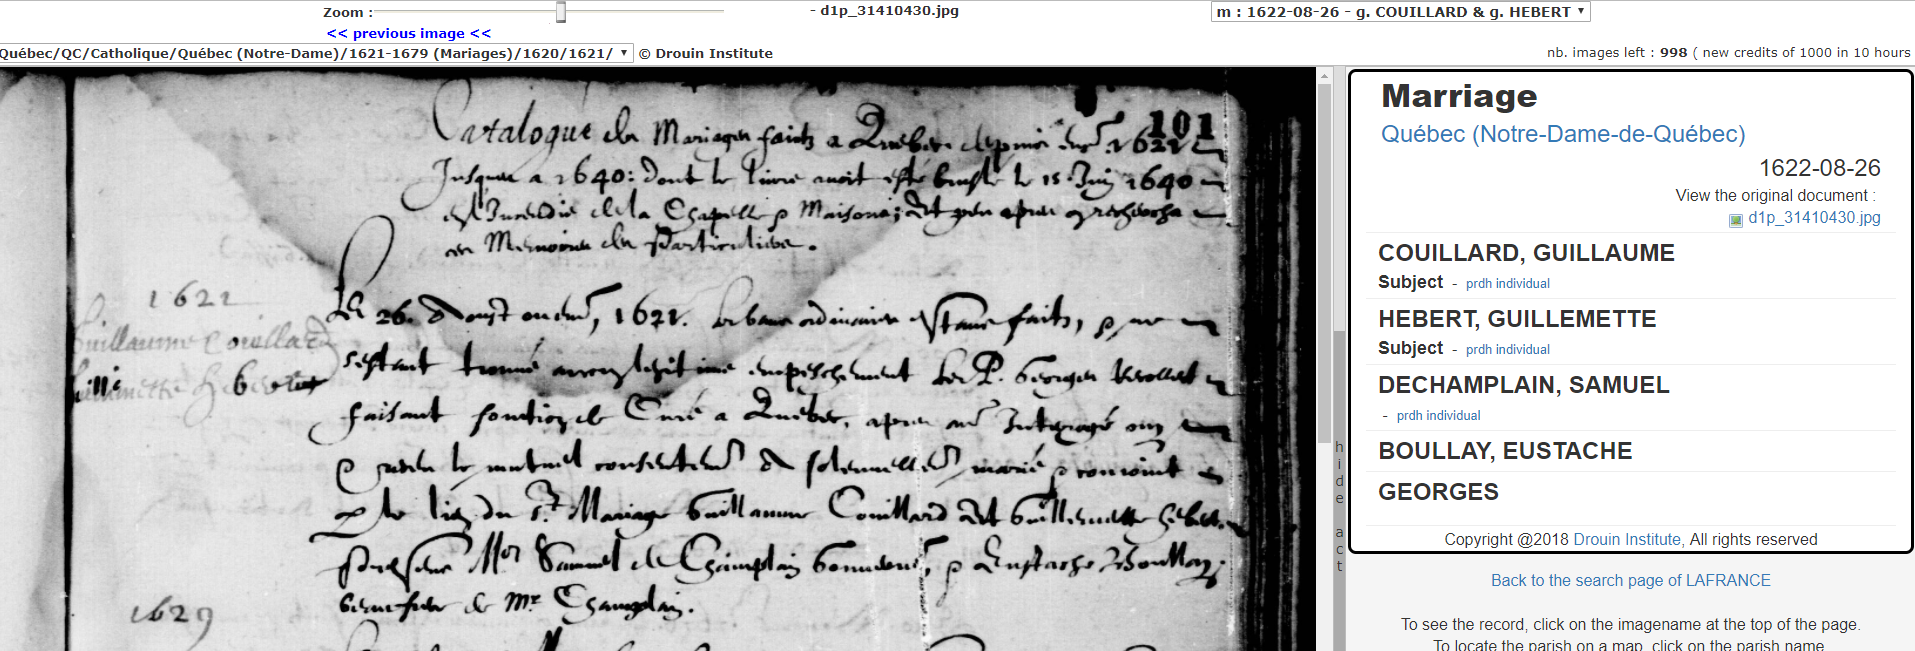 Zoom :
- d1p_31410430.jpg
m : 1622-08-26 - g. COUILLARD & g. HEBERT
<< previous image <<
Québec/QC/Catholique/Québec (Notre-Dame)/1621-1679 (Mariages)/1620/1621/
© Drouin Institute
nb. images left : 998 ( new credits of 1000 in 10 hours
101
Catalogue des Mariages faits a Quebec depuis 1621
Jusques a 1640: dont le livre avoit esté bruslé le 15 Juin 1640
la Chapelle Maison
Memoires des Particuliers.
1621
Le 26. d'Aoust 1621. faits,
Guillaume Couillard
s'estant trouvé legitime empeschement Le P. Georges
Guillemette Hebert
faisant de Curé a Quebec, apres
le mutuel marié conioint
le lien du St Mariage Guillaume Couillard et Guillemette Hebert
Samuel de Champlain Eustache Boullay
de Mr Champlain.
1629
Marriage
Québec (Notre-Dame-de-Québec)
1622-08-26
View the original document :
d1p_31410430.jpg
COUILLARD, GUILLAUME
Subject - prdh individual
HEBERT, GUILLEMETTE
Subject - prdh individual
DECHAMPLAIN, SAMUEL
- prdh individual
BOULLAY, EUSTACHE
GEORGES
Copyright @2018 Drouin Institute, All rights reserved
Back to the search page of LAFRANCE
To see the record, click on the imagename at the top of the page.
To locate the parish on a map, click on the parish name
hide act